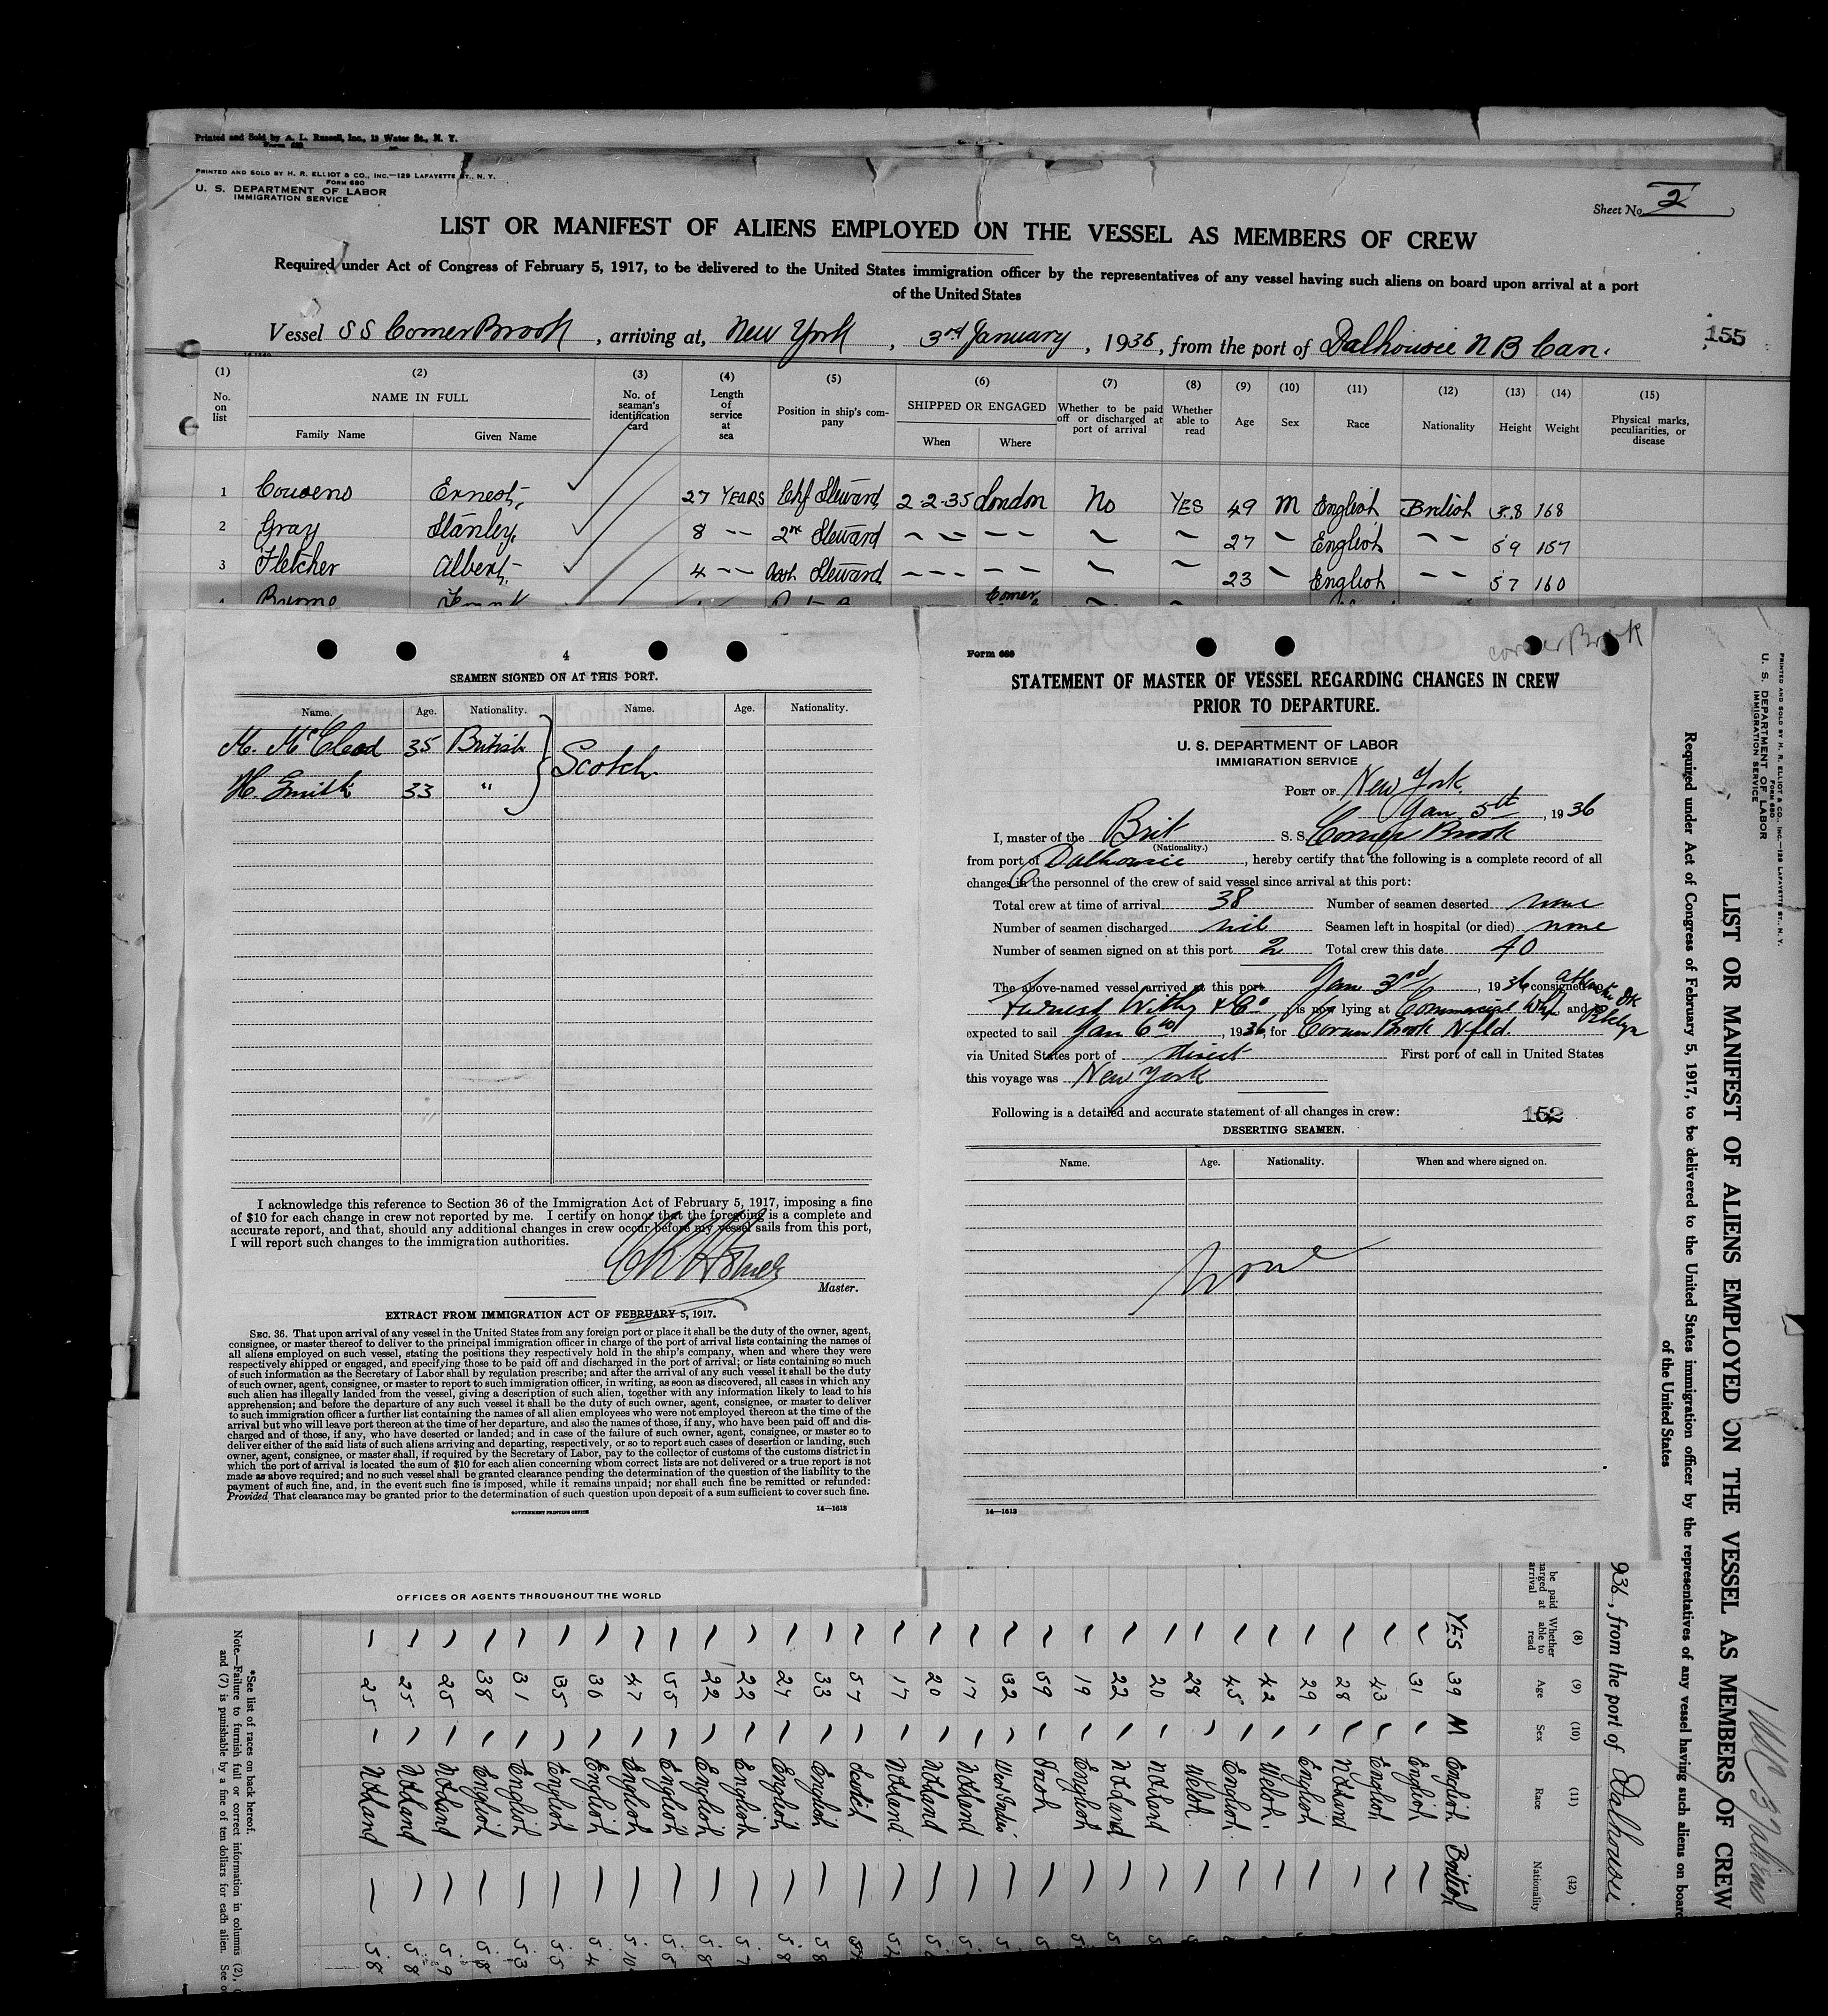 Printed and Sold by A. L. Russell, Inc., 13 Water St., N. Y.
PRINTED AND SOLD BY H. R. ELLIOT & CO., INC.—129 LAFAYETTE ST., N. Y.
FORM 680
U. S. DEPARTMENT OF LABOR
IMMIGRATION SERVICE
Sheet No. 2
LIST OR MANIFEST OF ALIENS EMPLOYED ON THE VESSEL AS MEMBERS OF CREW
Required under Act of Congress of February 5, 1917, to be delivered to the United States immigration officer by the representatives of any vessel having such aliens on board upon arrival at a port
of the United States
Vessel SS Corner Brook, arriving at, New York, 3rd January, 1936, from the port of Dalhousie N B Can.
155
(1) (2) (3) (4) (5) (6) (7) (8) (9) (10) (11) (12) (13) (14) (15)
No. on list NAME IN FULL Family Name Given Name No. of seaman's identification card Length of service at sea Position in ship's company SHIPPED OR ENGAGED When Where Whether to be paid off or discharged at port of arrival Whether able to read Age Sex Race Nationality Height Weight Physical marks, peculiarities, or disease
1 Cousens Ernest 27 YEARS Chf Steward 2-2-35 London No YES 49 M English British 5.8 168
2 Gray Stanley 8 -- 2nd Steward 27 English 59 157
3 Fletcher Albert 4 -- Steward 23 English 57 160
Corner
4
SEAMEN SIGNED ON AT THIS PORT.
Name. Age. Nationality. Name. Age. Nationality.
M. McCleod 35 British
Scotch
H. Smith 33 "
I acknowledge this reference to Section 36 of the Immigration Act of February 5, 1917, imposing a fine
of $10 for each change in crew not reported by me. I certify on honor that the foregoing is a complete and
accurate report, and that, should any additional changes in crew occur before my vessel sails from this port,
I will report such changes to the immigration authorities.
Master.
EXTRACT FROM IMMIGRATION ACT OF FEBRUARY 5, 1917.
SEC. 36. That upon arrival of any vessel in the United States from any foreign port or place it shall be the duty of the owner, agent,
consignee, or master thereof to deliver to the principal immigration officer in charge of the port of arrival lists containing the names of
all aliens employed on such vessel, stating the positions they respectively hold in the ship's company, when and where they were
respectively shipped or engaged, and specifying those to be paid off and discharged in the port of arrival; or lists containing so much
of such information as the Secretary of Labor shall by regulation prescribe; and after the arrival of any such vessel it shall be the duty
of such owner, agent, consignee, or master to report to such immigration officer, in writing, as soon as discovered, all cases in which any
such alien has illegally landed from the vessel, giving a description of such alien, together with any information likely to lead to his
apprehension; and before the departure of any such vessel it shall be the duty of such owner, agent, consignee, or master to deliver
to such immigration officer a further list containing the names of all alien employees who were not employed thereon at the time of the
arrival but who will leave port thereon at the time of her departure, and also the names of those, if any, who have been paid off and dis-
charged and of those, if any, who have deserted or landed; and in case of the failure of such owner, agent, consignee, or master so to
deliver either of the said lists of such aliens arriving and departing, respectively, or so to report such cases of desertion or landing, such
owner, agent, consignee, or master shall, if required by the Secretary of Labor, pay to the collector of customs of the customs district in
which the port of arrival is located the sum of $10 for each alien concerning whom correct lists are not delivered or a true report is not
made as above required; and no such vessel shall be granted clearance pending the determination of the question of the liability to the
payment of such fine, and, in the event such fine is imposed, while it remains unpaid; nor shall such fine be remitted or refunded:
Provided That clearance may be granted prior to the determination of such question upon deposit of a sum sufficient to cover such fine.
GOVERNMENT PRINTING OFFICE 14—1613
Corner Brook
Form 689
STATEMENT OF MASTER OF VESSEL REGARDING CHANGES IN CREW
PRIOR TO DEPARTURE.
U. S. DEPARTMENT OF LABOR
IMMIGRATION SERVICE
PORT OF New York
Jan 5th, 1936
I, master of the Brit S. S. Corner Brook
(Nationality.)
from port of Dalhousie, hereby certify that the following is a complete record of all
changes in the personnel of the crew of said vessel since arrival at this port:
Total crew at time of arrival 38 Number of seamen deserted none
Number of seamen discharged nil Seamen left in hospital (or died) none
Number of seamen signed on at this port 2 Total crew this date 40
The above-named vessel arrived at this port Jan 3rd, 1936, consigned to
Furness Withy & Co, is now lying at Commercial Whf, and is
expected to sail Jan 6th, 1936, for Corner Brook Nfld.
via United States port of direct First port of call in United States
this voyage was New York
Following is a detailed and accurate statement of all changes in crew: 152
DESERTING SEAMEN.
Name. Age. Nationality. When and where signed on.
None
14—1613
OFFICES OR AGENTS THROUGHOUT THE WORLD
PRINTED AND SOLD BY H. R. ELLIOT & CO., INC.—129 LAFAYETTE ST., N. Y.
FORM 680
U. S. DEPARTMENT OF LABOR
IMMIGRATION SERVICE
LIST OR MANIFEST OF ALIENS EMPLOYED ON THE VESSEL AS MEMBERS OF CREW
Required under Act of Congress of February 5, 1917, to be delivered to the United States immigration officer by the representatives of any vessel having such aliens on board
of the United States
936, from the port of Dalhousie
be paid arged at arrival (8) Whether able to read (9) Age (10) Sex (11) Race (12) Nationality
YES 39 M English British
31 English
43 English
28 Nfland
29 English
42 Welsh.
45 English.
28 Welsh.
20 Nfland
22 Nfland
19 English
59 Irish
32 West Indies
17 Nfland
20 Nfland
17 Nfland.
57
33 English 58
27 English 5.8
22 English 5.7
22 English 5.8
55 English 5.5
47 English 5.10
30 English 5.4
35 English 5.5
31 English 5.3
38 English 5.8
25 Nfland 5.9
25 Nfland 5.8
25 Nfland 5.8
*See list of races on back hereof.
Note.—Failure to furnish full or correct information in columns (2),
and (7) is punishable by a fine of ten dollars for each alien. See